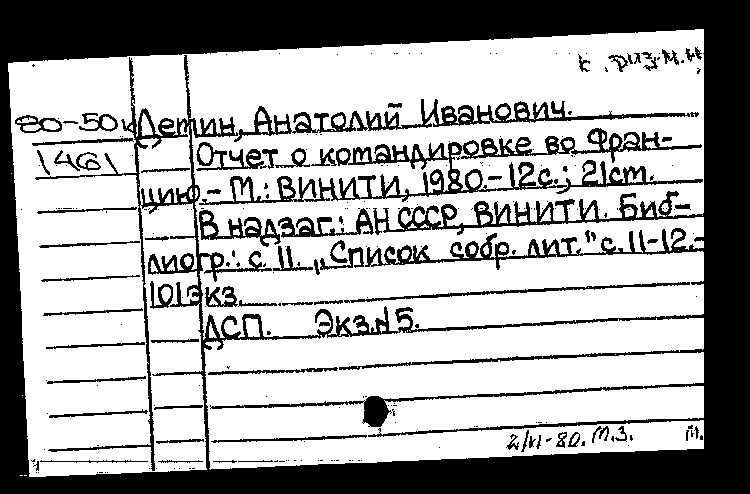 к . физ-м.н
80-50к Детин, Анатолий Иванович.
1461 Отчет о командировке во Фран-
цию. - М.: ВИНИТИ, 1980. - 12с.; 21ст.
В надзаг.: АН СССР, ВИНИТИ. Биб-
лиогр.: с. 11. „Список собр. лит." с. 11-12. -
101экз.
ДСП. Экз.№5.
2/VI-80. М.З. М.